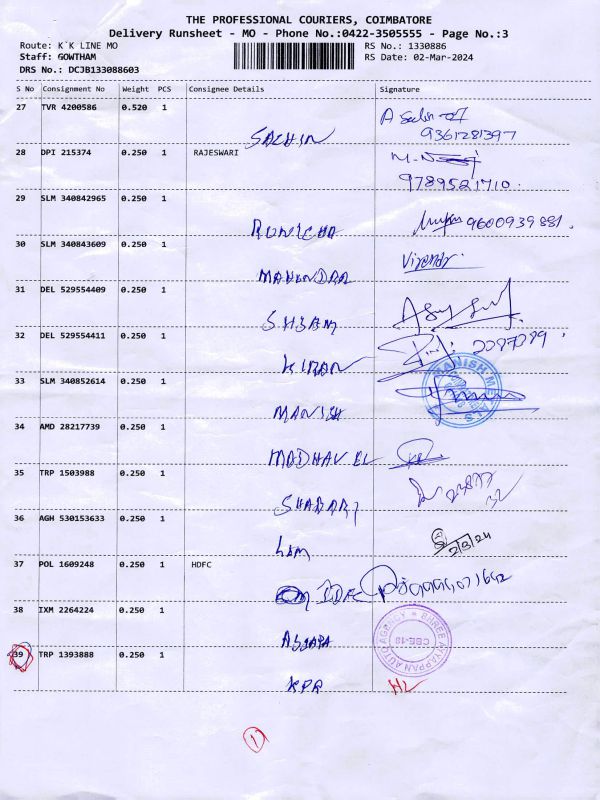 THE PROFESSIONAL COURIERS, COIMBATORE
Delivery Runsheet - MO - Phone No.:0422-3505555 - Page No.:3
Route: K K LINE MO
RS No.: 1330886
Staff: GOWTHAM
RS Date: 02-Mar-2024
DRS No.: DCJB133088603
S No Consignment No Weight PCS Consignee Details Signature
27 TVR 4200586 0.520 1
SACHIN
9361281397
28 DPI 215374 0.250 1 RAJESWARI
9789521710
29 SLM 340842965 0.250 1
9600939881
30 SLM 340843609 0.250 1
MAHENDRA
31 DEL 529554409 0.250 1
SHYAM
32 DEL 529554411 0.250 1
KIRAN
33 SLM 340852614 0.250 1
MANISH
MANISH METALS
34 AMD 28217739 0.250 1
MADHAV EL
35 TRP 1503988 0.250 1
SHABARI
36 AGH 530153633 0.250 1
37 POL 1609248 0.250 1 HDFC
38 IXM 2264224 0.250 1
SHREE AYYAPPAN AUTO AGENCY
CBE-18
39 TRP 1393888 0.250 1
KPR
1